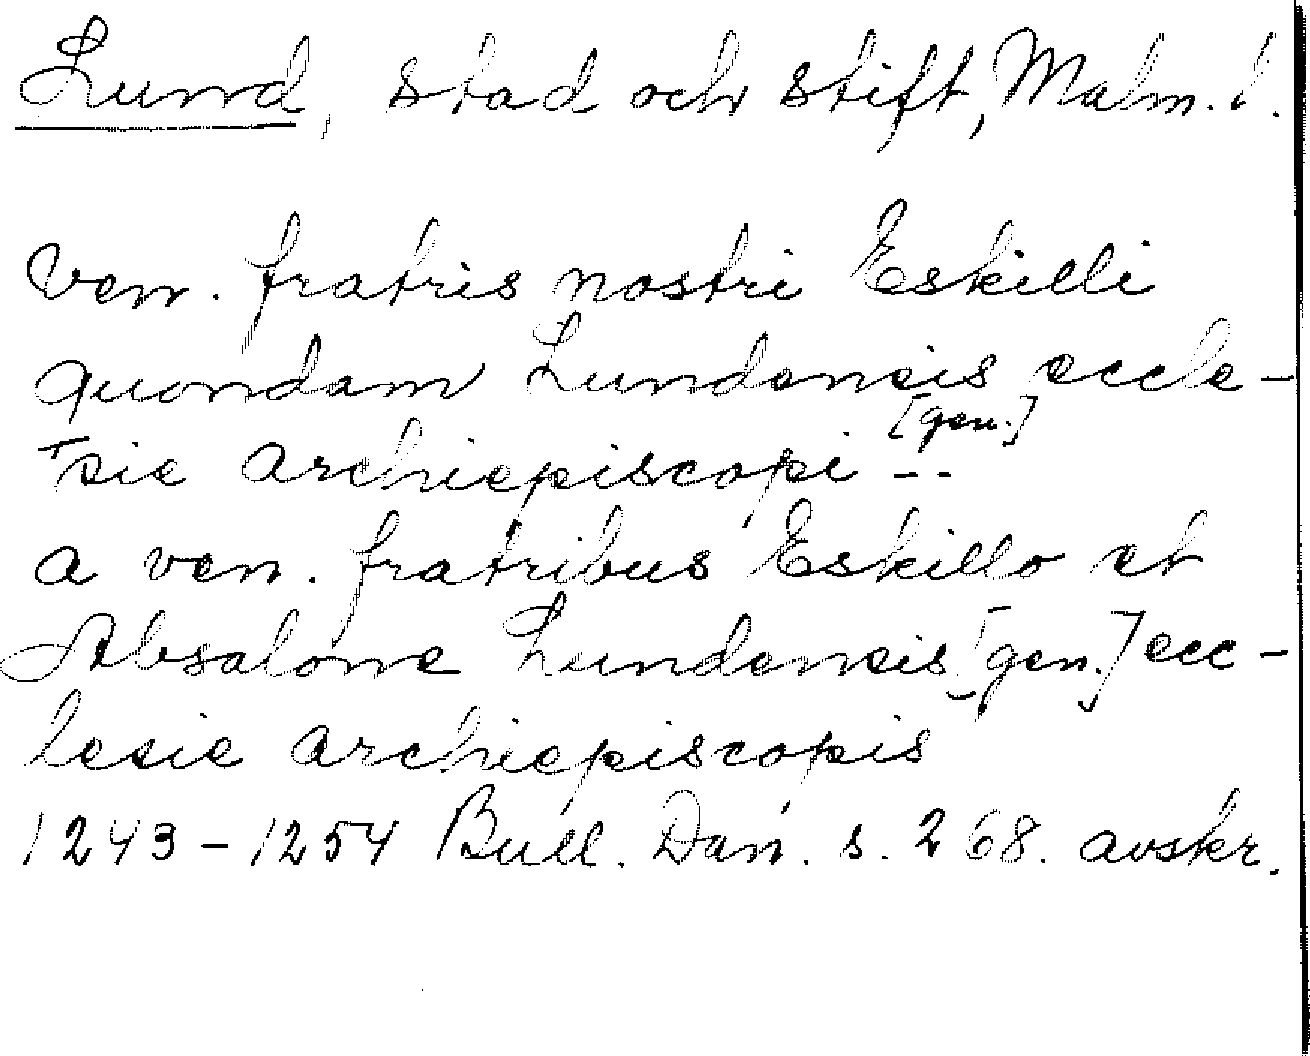 Lund, stad och stift, Malm. l.
ven. fratris nostri Eskilli
quondam Lundensis eccle-
sie archiepiscopi [gen.] --
a ven. fratribus Eskillo et
Absalone Lundensis [gen.] ecc-
lesie archiepiscopis
1243-1254 Bull. Dan. s. 268. avskr.